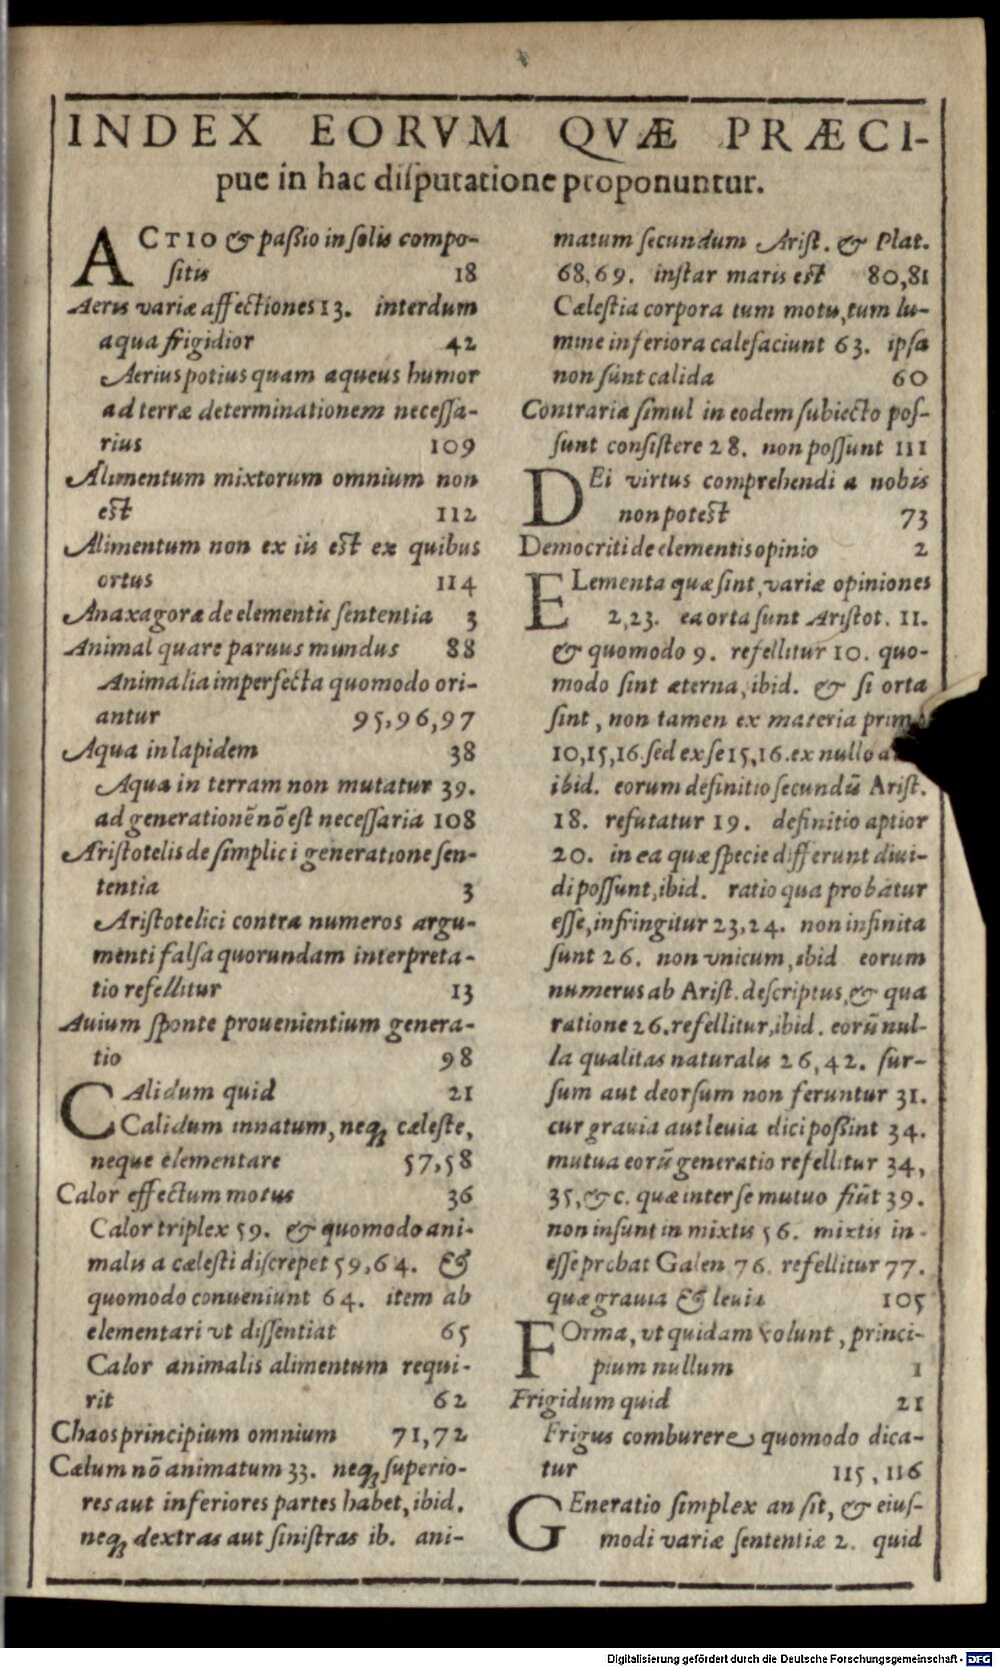 INDEX EORVM QVÆ PRÆCI-
pue in hac disputatione proponuntur.
ACTIO & paßio in solis compo-
sitis 18
Aeris variæ affectiones 13. interdum
aqua frigidior 42
Aerius potius quam aqueus humor
ad terræ determinationem necessa-
rius 109
Alimentum mixtorum omnium non
est 112
Alimentum non ex iis est ex quibus
ortus 114
Anaxagoræ de elementis sententia 3
Animal quare paruus mundus 88
Animalia imperfecta quomodo ori-
antur 95,96,97
Aqua in lapidem 38
Aqua in terram non mutatur 39.
ad generationē nō est necessaria 108
Aristotelis de simplici generatione sen-
tentia 3
Aristotelici contra numeros argu-
menti falsa quorundam interpreta-
tio refellitur 13
Auium sponte prouenientium genera-
tio 98
CAlidum quid 21
Calidum innatum, neq; cæleste,
neque elementare 57,58
Calor effectum motus 36
Calor triplex 59. & quomodo ani-
malis a cælesti discrepet 59,64. &
quomodo conueniunt 64. item ab
elementari vt dissentiat 65
Calor animalis alimentum requi-
rit 62
Chaos principium omnium 71,72
Cælum nō animatum 33. neq; superio-
res aut inferiores partes habet, ibid.
neq; dextras aut sinistras ib. ani-
matum secundum Arist. & Plat.
68,69. instar maris est 80,81
Cælestia corpora tum motu, tum lu-
mine inferiora calefaciunt 63. ipsa
non sunt calida 60
Contraria simul in eodem subiecto pos-
sunt consistere 28. non possunt 111
DEi virtus comprehendi a nobis
non potest 73
Democriti de elementis opinio 2
ELementa quæ sint, variæ opiniones
2,23. ea orta sunt Aristot. 11.
& quomodo 9. refellitur 10. quo-
modo sint æterna, ibid. & si orta
sint, non tamen ex materia prima
10,15,16. sed ex se 15,16. ex nullo
ibid. eorum definitio secundū Arist.
18. refutatur 19. definitio aptior
20. in ea quæ specie differunt diui-
di possunt, ibid. ratio qua probatur
esse, infringitur 23,24. non infinita
sunt 26. non vnicum, ibid eorum
numerus ab Arist. descriptus, & qua
ratione 26. refellitur, ibid. eorū nul-
la qualitas naturalis 26,42. sur-
sum aut deorsum non feruntur 31.
cur grauia aut leuia dici poßint 34.
mutua eorū generatio refellitur 34,
35, &c. quæ inter se mutuo fiūt 39.
non insunt in mixtis 56. mixtis in-
esse probat Galen 76. refellitur 77.
quæ grauia & leuia 105
FOrma, vt quidam volunt, princi-
pium nullum 1
Frigidum quid 21
Frigus comburere quomodo dica-
tur 115,116
GEneratio simplex an sit, & eius-
modi variæ sententiæ 2. quid
Digitalisierung gefördert durch die Deutsche Forschungsgemeinschaft - DFG